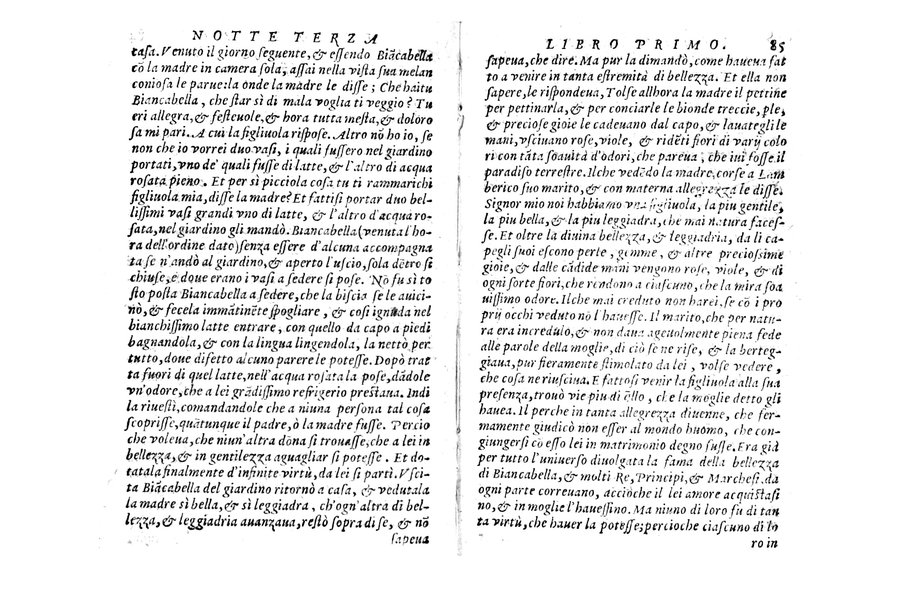 NOTTE TERZA
casa. Venuto il giorno ſeguente, & eſſendo Biācabella
cō la madre in camera ſola, aſſai nella viſta ſua melan
conioſa le parue: la onde la madre le diſſe; Che hai tu
Biancabella, che ſtar sì di mala voglia ti veggio? Tu
eri allegra, & feſteuole, & hora tutta meſta, & doloro
ſa mi pari. A cui la figliuola riſpoſe. Altro nō ho io, ſe
non che io vorrei duo vaſi, i quali fuſſero nel giardino
portati, vno de' quali fuſſe di latte, & l'altro di acqua
roſata pieno. Et per sì picciola coſa tu ti rammarichi
figliuola mia, diſſe la madre? Et fattiſi portar duo bel-
liſſimi vaſi grandi vno di latte, & l'altro d'acqua ro-
ſata, nel giardino gli mandò. Biancabella (venuta l'ho
ra dell'ordine dato) ſenza eſſere d'alcuna accompagna
ta ſe n'andò al giardino, & aperto l'uſcio, ſola dētro ſi
chiuſe, e doue erano i vaſi a ſedere ſi poſe. Nō fu sì to
ſto poſta Biancabella a ſedere, che la biſcia ſe le auici-
nò, & fecela immātinēte ſpogliare, & coſi ignuda nel
bianchiſſimo latte entrare, con quello da capo a piedi
bagnandola, & con la lingua lingendola, la nettò per
tutto, doue difetto alcuno parere le poteſſe. Dopò trat
ta fuori di quel latte, nell'acqua roſata la poſe, dādole
vn'odore, che a lei grādiſſimo refrigerio preſtaua. Indi
la riueſtì, comandandole che a niuna perſona tal coſa
ſcopriſſe, quātunque il padre, ò la madre fuſſe. Percio
che voleua, che niun'altra dōna ſi trouaſſe, che a lei in
bellezza, & in gentilezza aguagliar ſi poteſſe. Et do-
tatala finalmente d'infinite virtù, da lei ſi partì. Vſci-
ta Biācabella del giardino ritornò a caſa, & vedutala
la madre sì bella, & sì leggiadra, ch'ogn'altra di bel-
lezza, & leggiadria auanzaua, reſtò ſopra di ſe, & nō
ſapeua
LIBRO PRIMO. 85
ſapeua, che dire. Ma pur la dimandò, come haueua fat
to a venire in tanta eſtremità di bellezza. Et ella non
ſapere, le riſpondeua, Tolſe allhora la madre il pettine
per pettinarla, & per conciarle le bionde treccie, ple,
& precioſe gioie le cadeuano dal capo, & lauategli le
mani, vſciuano roſe, viole, & ridēti fiori di varij colo
ri con tāta ſoauità d'odori, che pareua, che iui foſſe il
paradiſo terreſtre. Ilche vedēdo la madre, corſe a Lam
berico ſuo marito, & con materna allegrezza le diſſe.
Signor mio noi habbiamo vna figliuola, la piu gentile,
la piu bella, & la piu leggiadra, che mai natura faceſ-
ſe. Et oltre la diuina bellezza, & leggiadria, da li ca-
pegli ſuoi eſcono perle, gemme, & altre precioſiſſime
gioie, & dalle cādide mani vengono roſe, viole, & di
ogni ſorte fiori, che rendono a ciaſcuno, che la mira ſoa
uiſſimo odore. Ilche mai creduto non harei, ſe cō i pro
prij occhi veduto nō l'haueſſe. Il marito, che per natu-
ra era incredulo, & non daua ageuolmente piena fede
alle parole della moglie, di ciò ſe ne riſe, & la berteg-
giaua, pur fieramente ſtimolato da lei, volſe vedere,
che coſa ne riuſciua. E fattoſi venir la figliuola alla ſua
preſenza, trouò vie piu di ēllo, che la moglie detto gli
hauea. Il perche in tanta allegrezza diuenne, che fer-
mamente giudicò non eſſer al mondo huomo, che con-
giungerſi cō eſſo lei in matrimonio degno fuſſe. Era già
per tutto l'uniuerſo diuolgata la fama della bellezza
di Biancabella, & molti Re, Principi, & Marcheſi da
ogni parte correuano, accioche il lei amore acquiſtaſi
no, & in moglie l'haueſſino. Ma niuno di loro fu di tan
ta virtù, che hauer la poteſſe; percioche ciaſcuno di lo
ro in